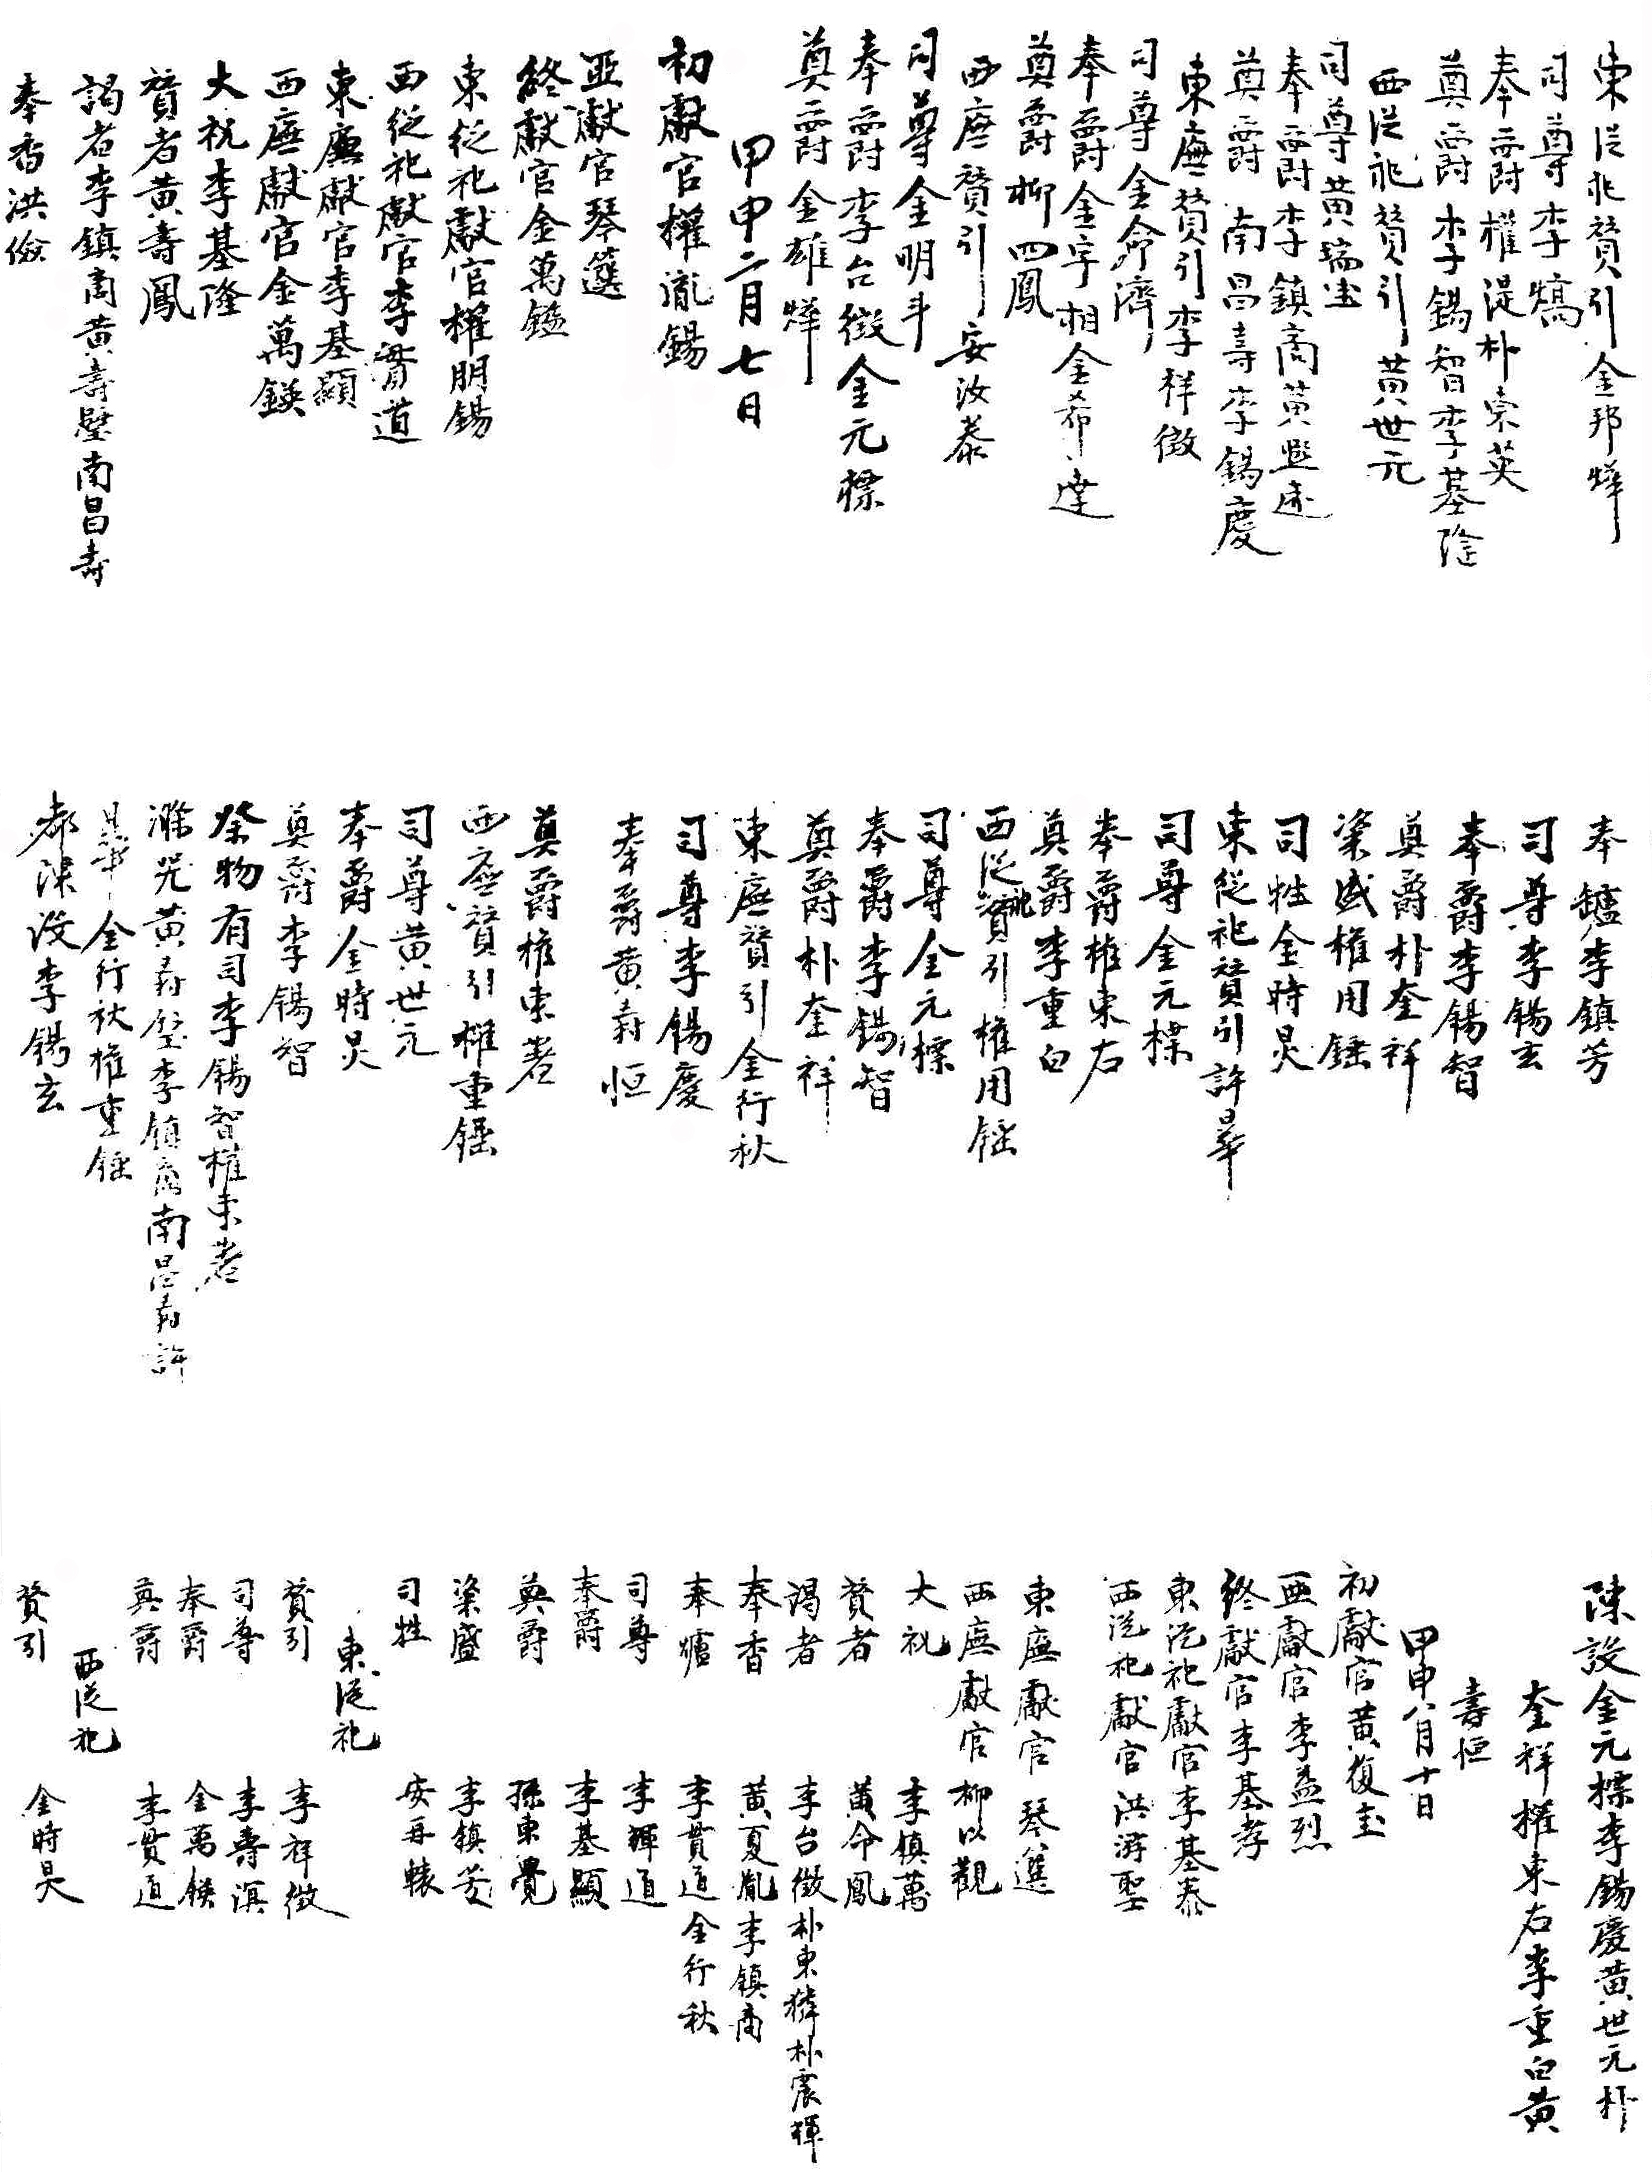 東從祀贊引金邦燁
司尊李熇
奉爵權湜朴東英
奠爵李錫智李基隆
西從祀贊引黃世元
司尊黃瑞
奉爵李鎮商黃
奠爵南昌壽李錫慶
東廡贊引李祥徵
司尊金命濟
奉爵金宇相金希達
奠爵柳四鳳
西廡贊引安汝泰
司尊金明斗
奉爵李台徵金元標
奠爵金雄燁
甲申二月七日
初獻官權胤錫
亞獻官琴簉
終獻官金萬鎰
東從祀獻官權朋錫
西從祀獻官李貫道
東廡獻官李基顯
西廡獻官金萬鍈
大祝李基隆
贊者黃壽鳳
謁者李鎮商黃壽壁南昌壽
奉香洪儉
奉鑪李鎮芳
司尊李錫玄
奉爵李錫智
奠爵朴奎祥
粢盛權用錘
司牲金時炅
東從祀贊引許曅
司尊金元標
奉爵權東右
奠爵李重白
西從祀贊引權用錘
司尊金元標
奉爵李錫智
奠爵朴奎祥
東廡贊引金行秋
司尊李錫慶
奉爵黃壽恒
奠爵權東耉
西廡贊引權重錘
司尊黃世元
奉爵金時炅
奠爵李錫智
祭物有司李錫智權東耉
滌器黃壽壁李鎮商南昌壽許
曅金行秋權重錘
都陳設李錫玄
陳設金元標李錫慶黃世元朴
奎祥權東右李重白黃
壽恒
甲申八月十日
初獻官黃復圭
亞獻官李益烈
終獻官李基孝
東從祀獻官李基泰
西從祀獻官洪游聖
東廡獻官琴簉
西廡獻官柳以觀
大祝 李鎮萬
贊者 黃命鳳
謁者 李台徵朴東獜朴震輝
奉香 黃夏胤李鎮商
奉爐 李貫道金行秋
司尊 李輝道
奉爵 李基顯
奠爵 孫東覺
粢盛 李鎮芳
司牲 安再轅
東從祀
贊引 李祥徵
司尊 李壽溟
奉爵 金萬鍈
奠爵 李貫道
西從祀
贊引 金時炅